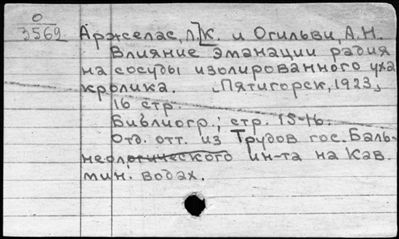 0
3569
Аржелас, Л.К. и Огильви, А.Н.
Влияние эманации радия
на сосуды изолированного уха
кролика. Пятигорск, 1923,
16 стр.
Библиогр.; стр. 15-16.
Отд. отт. из Трудов гос. Баль-
неологического ин-та на Кав.
мин. водах.